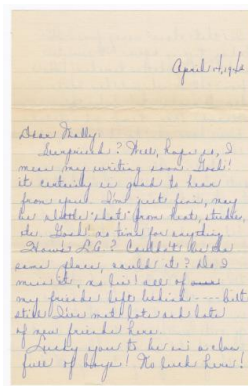 April 4, 19
Dear Wally:
Surprised? Well, hope so, I
mean my writing soon. Gosh!
it certainly is good to hear
from you. I'm just fine, may
be a little "shot" from heat, studies,
etc. Gosh! no time for anything.
How's L.A.? Couldn't be the
same place, could it? Do I
miss it, so bad! all of
my friends left behind ---- but
still I've met lots and lots
of new friends here.
Lucky you to be in a class
full of boys! No luck here!